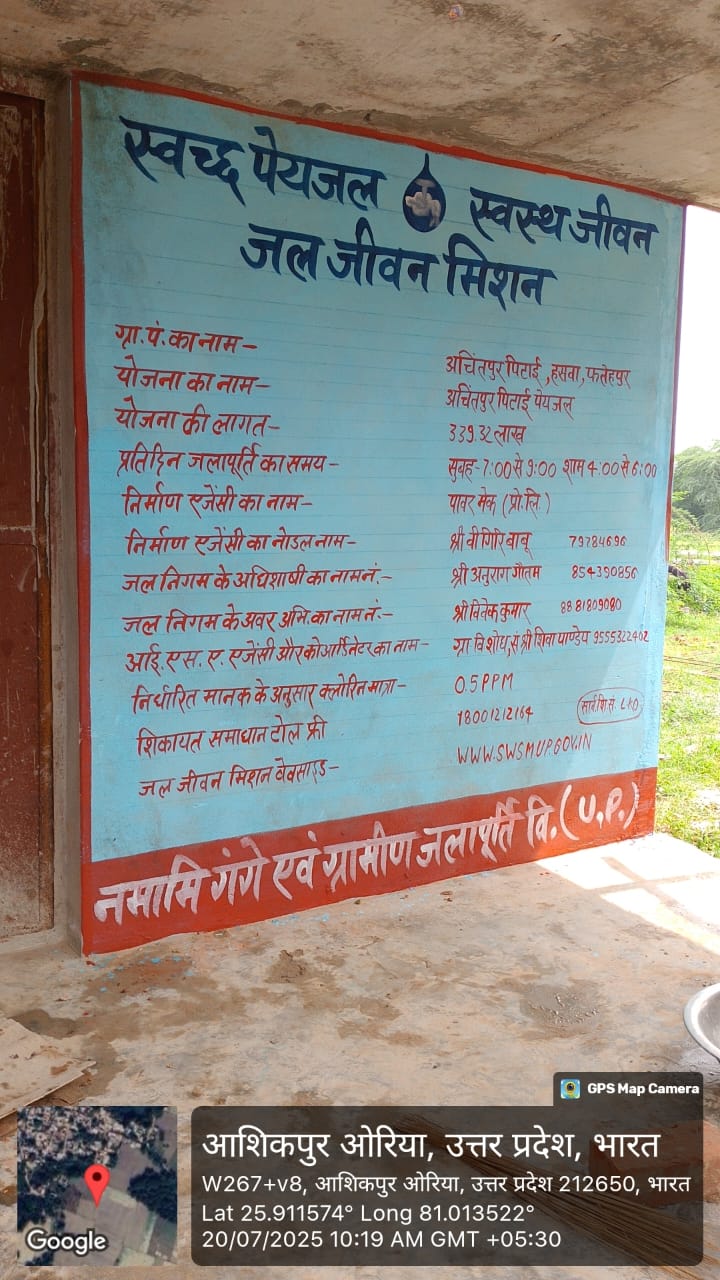 स्वच्छ पेयजल स्वस्थ जीवन
जल जीवन मिशन
ग्रा.पं. का नाम – अचिंतपुर पिटाई, हसवा, फतेहपुर
योजना का नाम – अचिंतपुर पिटाई पेयजल
योजना की लागत – 339.32 लाख
प्रतिदिन जलापूर्ति का समय – सुबह - 7:00 से 9:00 शाम 4:00 से 6:00
निर्माण एजेंसी का नाम – पावर मेक (प्रो.लि.)
निर्माण एजेंसी का नोडल नाम – श्री वी गिरि बाबू 79784696
जल निगम के अधिशाषी का नाम नं. – श्री अनुराग गौतम 854390856
जल निगम के अवर अभि. का नाम नं. – श्री विवेक कुमार 8881809080
आई. एस. ए. एजेंसी और कोआर्डिनेटर का नाम – ग्रा वि शोध, सं श्री शिवा पाण्डेय 9555322402
निर्धारित मानक के अनुसार क्लोरिन मात्रा – 0.5 PPM
शिकायत समाधान टोल फ्री 18001212164
जल जीवन मिशन वेबसाइड – WWW.SWSMUP.GOV.IN
नमामि गंगे एवं ग्रामीण जलापूर्ति वि. (U.P.)
GPS Map Camera
आशिकपुर ओरिया, उत्तर प्रदेश, भारत
W267+v8, आशिकपुर ओरिया, उत्तर प्रदेश 212650, भारत
Lat 25.911574° Long 81.013522°
20/07/2025 10:19 AM GMT +05:30
Google